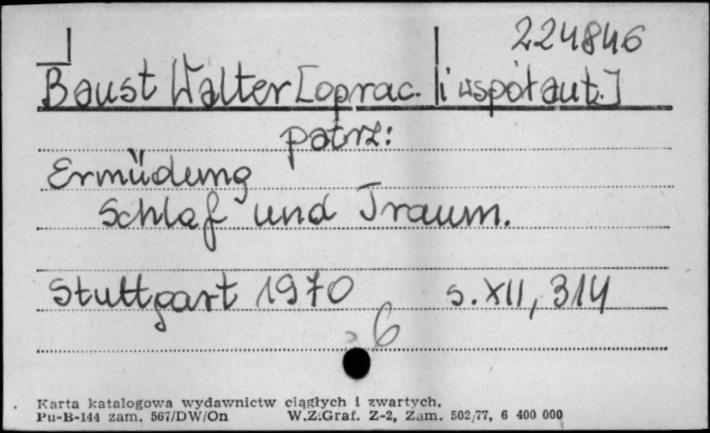 224846
Baust Walter [oprac. i współaut.]
patrz:
Ermüdung
Schlaf und Traum.
Stuttgart 1970 s. XII, 314
6
Karta katalogowa wydawnictw ciągłych i zwartych.
Pu-B-144 zam. 567/DW/On W.Z.Graf. Z-2, Zam. 502/77, 6 400 000